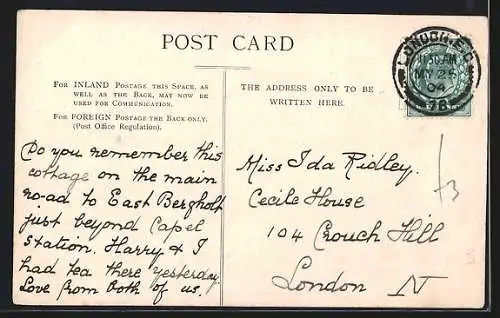 POST CARD
FOR INLAND POSTAGE THIS SPACE, AS
WELL AS THE BACK, MAY NOW BE
USED FOR COMMUNICATION.
FOR FOREIGN POSTAGE THE BACK ONLY.
(Post Office Regulation).
THE ADDRESS ONLY TO BE
WRITTEN HERE.
LONDON E.C.
11.30 AM
MY 25
04
78
Do you remember this
cottage on the main
ro-ad to East Bergholt
just beyond Capel
Station. Harry & I
had tea there yesterday.
Love from both of us.
Miss Ida Ridley.
Cecile House
104 Crouch Hill
London N